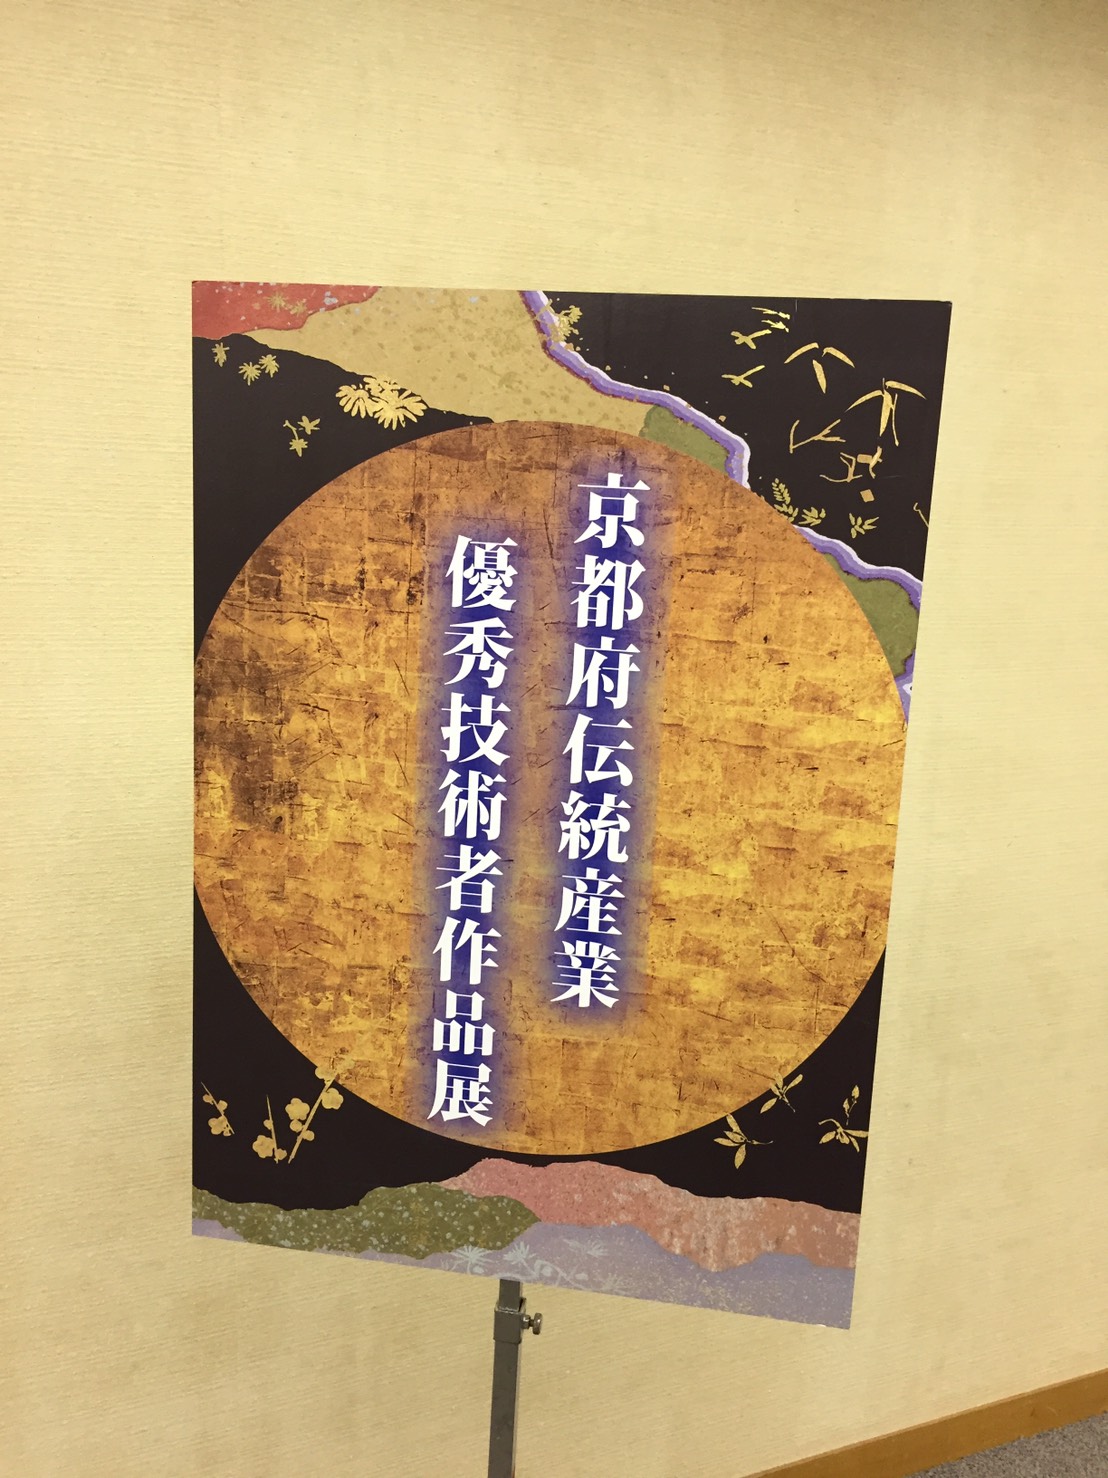 京都府伝統産業
優秀技術者作品展